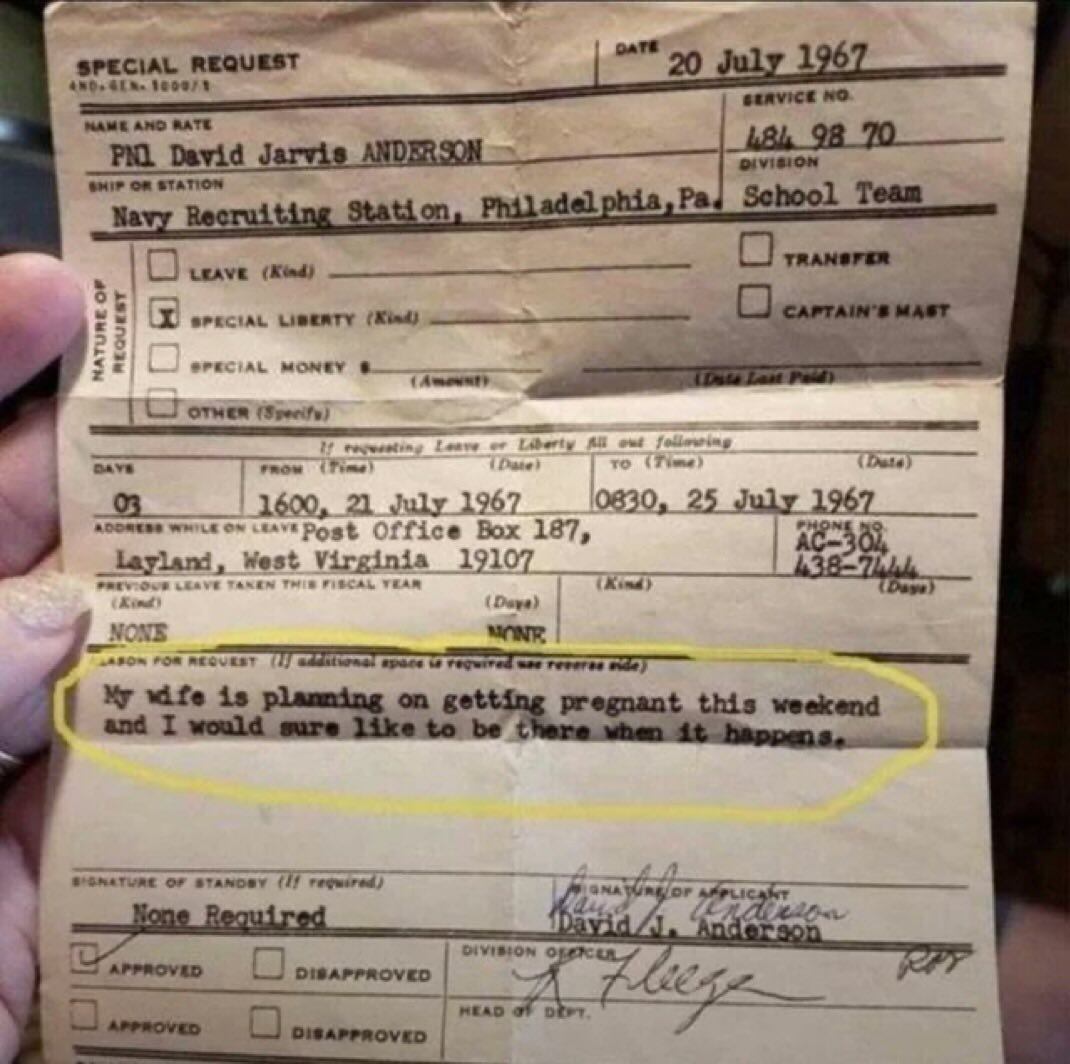 SPECIAL REQUEST
AND-GEN-1000/1
DATE 20 July 1967
NAME AND RATE
PN1 David Jarvis ANDERSON
SERVICE NO.
484 98 70
SHIP OR STATION
Navy Recruiting Station, Philadelphia,Pa.
DIVISION
School Team
NATURE OF REQUEST
LEAVE (Kind)
TRANSFER
X SPECIAL LIBERTY (Kind)
CAPTAIN'S MAST
SPECIAL MONEY $
(Amount) (Date Last Paid)
OTHER (Specify)
If requesting Leave or Liberty fill out following
DAYS FROM (Time) (Date) TO (Time) (Date)
03 1600, 21 July 1967 0830, 25 July 1967
ADDRESS WHILE ON LEAVE Post Office Box 187,
Layland, West Virginia 19107
PHONE NO.
AC-304
438-7444
PREVIOUS LEAVE TAKEN THIS FISCAL YEAR
(Kind) (Days) (Kind) (Days)
NONE NONE
REASON FOR REQUEST (If additional space is required use reverse side)
My wife is planning on getting pregnant this weekend
and I would sure like to be there when it happens.
SIGNATURE OF STANDBY (If required)
None Required
SIGNATURE OF APPLICANT
David J. Anderson
David J. Anderson
APPROVED DISAPPROVED
DIVISION OFFICER
APPROVED DISAPPROVED
HEAD OF DEPT.